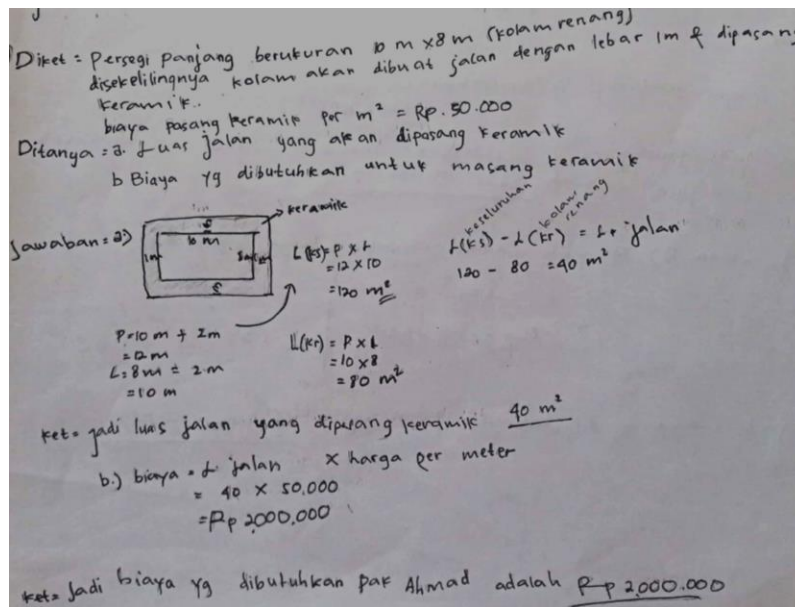 Diket = Persegi Panjang berukuran 10 m x 8 m (kolam renang)
disekelilingnya kolam akan dibuat jalan dengan lebar 1m & dipasang
keramik..
biaya pasang keramik per m² = Rp. 50.000
Ditanya = a. Luas jalan yang akan dipasang keramik
b Biaya yg dibutuhkan untuk masang keramik
Jawaban = a)
keramik
10 m
1m
L(ks)= P x L
= 12 x 10
= 120 m²
keseluruhan
kolam renang
L(ks) - L(kr) = L. jalan
120 - 80 = 40 m²
P=10 m + 2m
= 12m
L= 8m = 2m
= 10 m
L(kr) = P x L
= 10 x 8
= 80 m²
ket= jadi luas jalan yang dipasang keramik 40 m²
b.) biaya = L. jalan x harga per meter
= 40 x 50.000
= Rp 2000.000
ket= Jadi biaya yg dibutuhkan pak Ahmad adalah Rp 2000.000